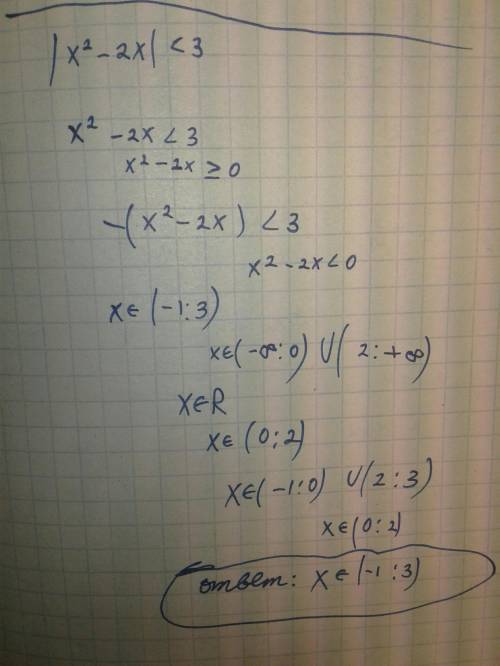 |x² - 2x| < 3
x² - 2x < 3
x² - 2x ≥ 0
-(x² - 2x) < 3
x² - 2x < 0
x ∈ (-1 : 3)
x ∈ (-∞ : 0) ∪ (2 : +∞)
x ∈ R
x ∈ (0 ; 2)
x ∈ (-1 : 0) ∪ (2 : 3)
x ∈ (0 : 2)
ответ: x ∈ (-1 : 3)